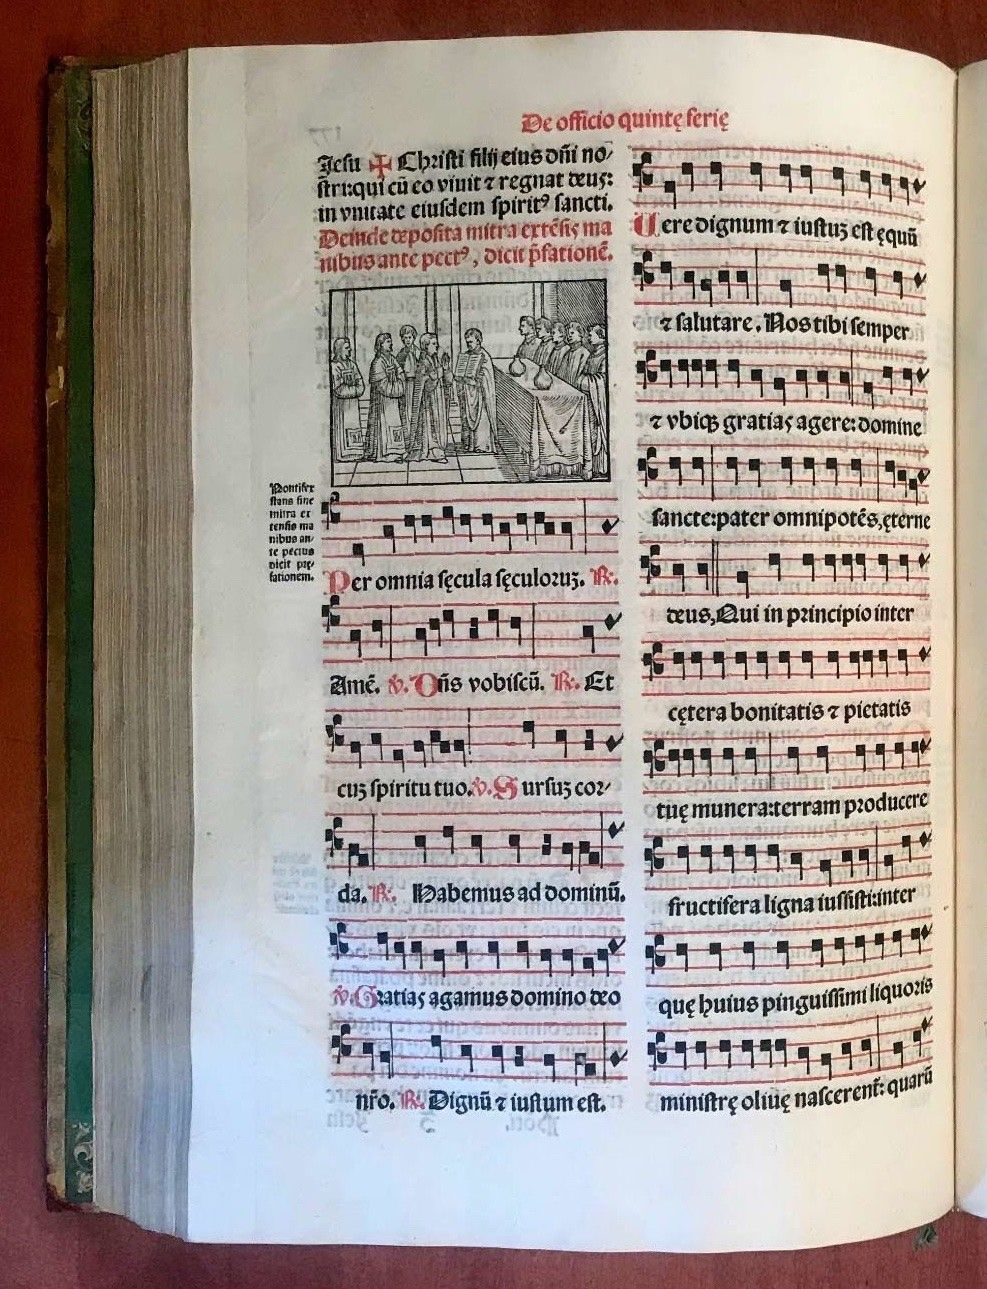 De officio quintę ferię
Jesu ✠ Christi filij eius dñi no-
stri:qui cū eo viuit ⁊ regnat deus:
in vnitate eiusdem spiritꝰ sancti.
Deinde deposita mitra extẽsis ma
nibus ante pectꝰ, dicit p̄fationẽ.
Pontifex
stans sine
mitra ex
tensis ma
nibus an-
te pectus
dicit pre-
fationem.
Per omnia sęcula sęculoruʒ. ℟.
Amē. ℣. Dñs vobiscū. ℟. Et
cuʒ spiritu tuo. ℣. Sursuʒ cor-
da. ℟. Habemus ad dominū.
℣. Gratias agamus domino deo
nr̃o. ℟. Dignū ⁊ iustum est.
Uere dignum ⁊ iustuʒ est ęquū
⁊ salutare, Nos tibi semper
⁊ vbiqꝫ gratias agere: domine
sancte:pater omnipotẽs,ęterne
deus, Qui in principio inter
cętera bonitatis ⁊ pietatis
tuę munera:terram producere
fructifera ligna iussisti:inter
quę huius pinguissimi liquoris
ministrę oliuę nascerent̃: quarū